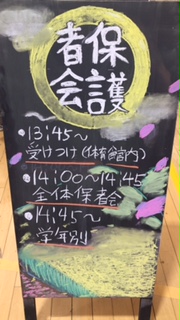 保護
者会
・13:45～
受けつけ(体育館内)
・14:00～14:45
全体保者会
・14:45～
学年別